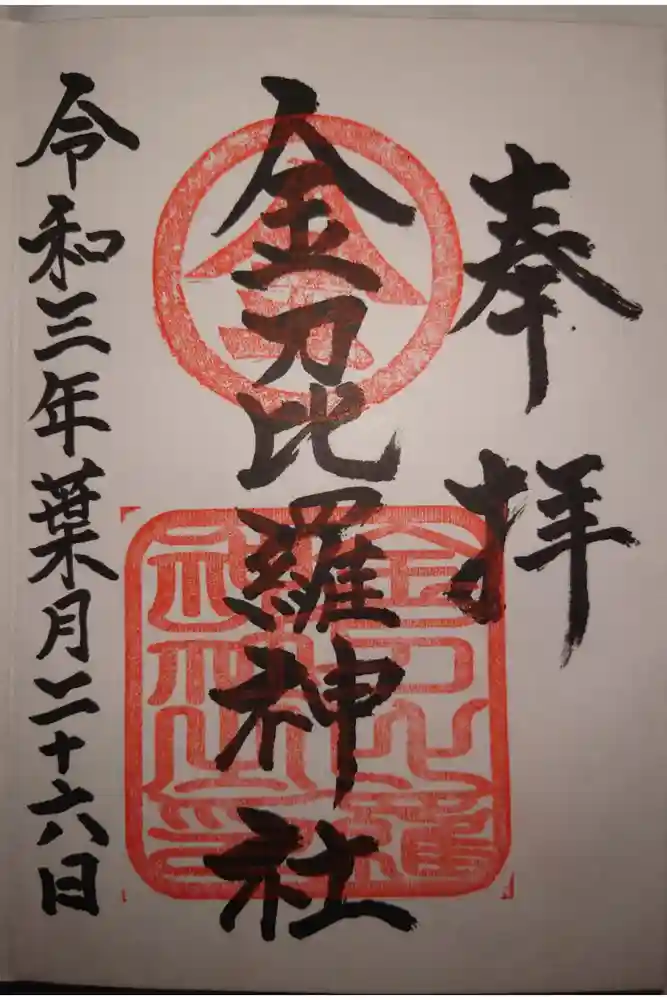 奉拝
金刀比羅神社
令和三年葉月二十六日
金
金刀比羅神社印